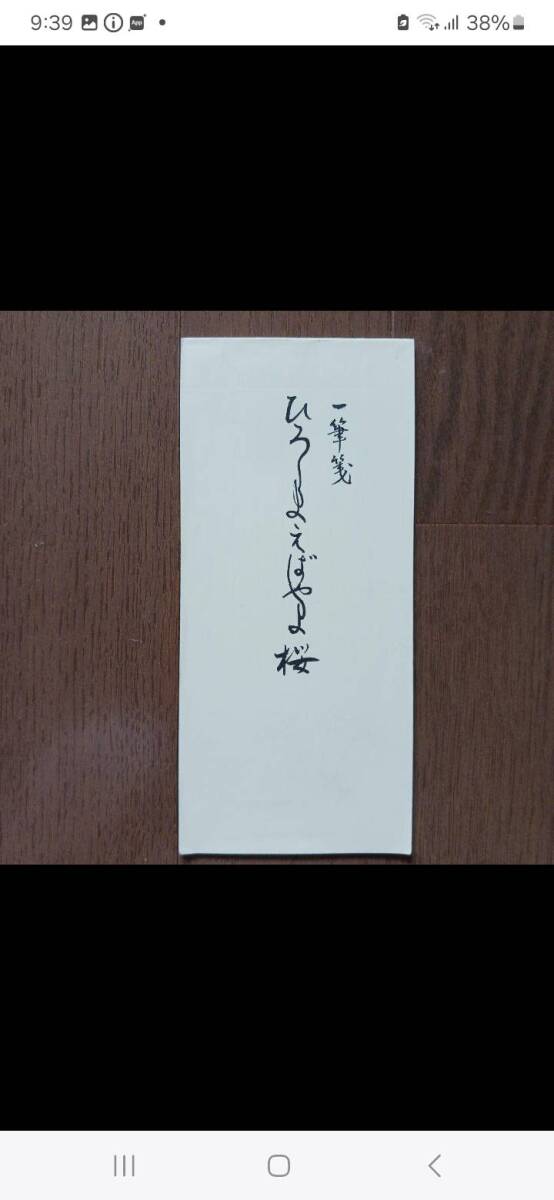 9:39
App
38%
一筆箋
ひろしまえばやま桜